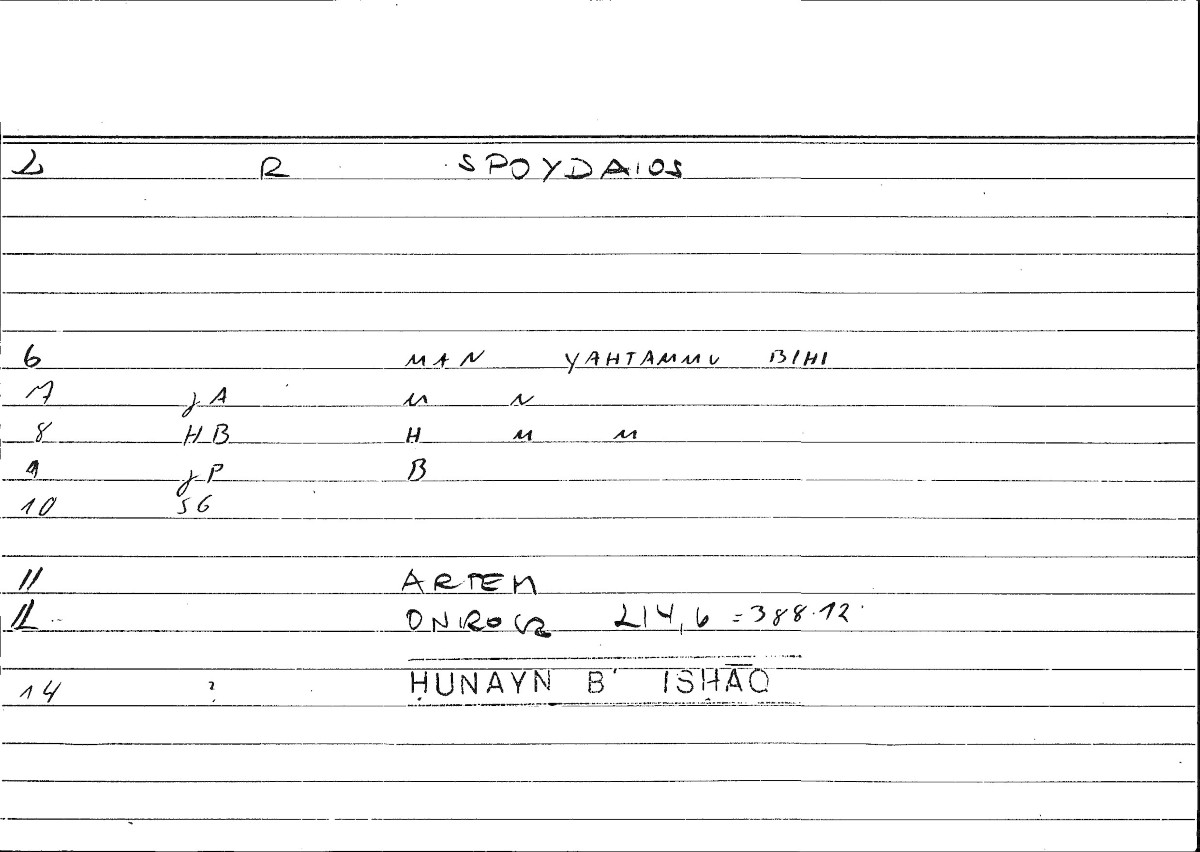 2 R SPOYDAIOS
6 MAN YAHTAMMU BIHI
7 jA M N
8 HB H M M
9 jP B
10 SG
11 ARTEM
12 ONIROCR 214,6 = 388.12
14 ? ḤUNAYN B' ISḤĀQ